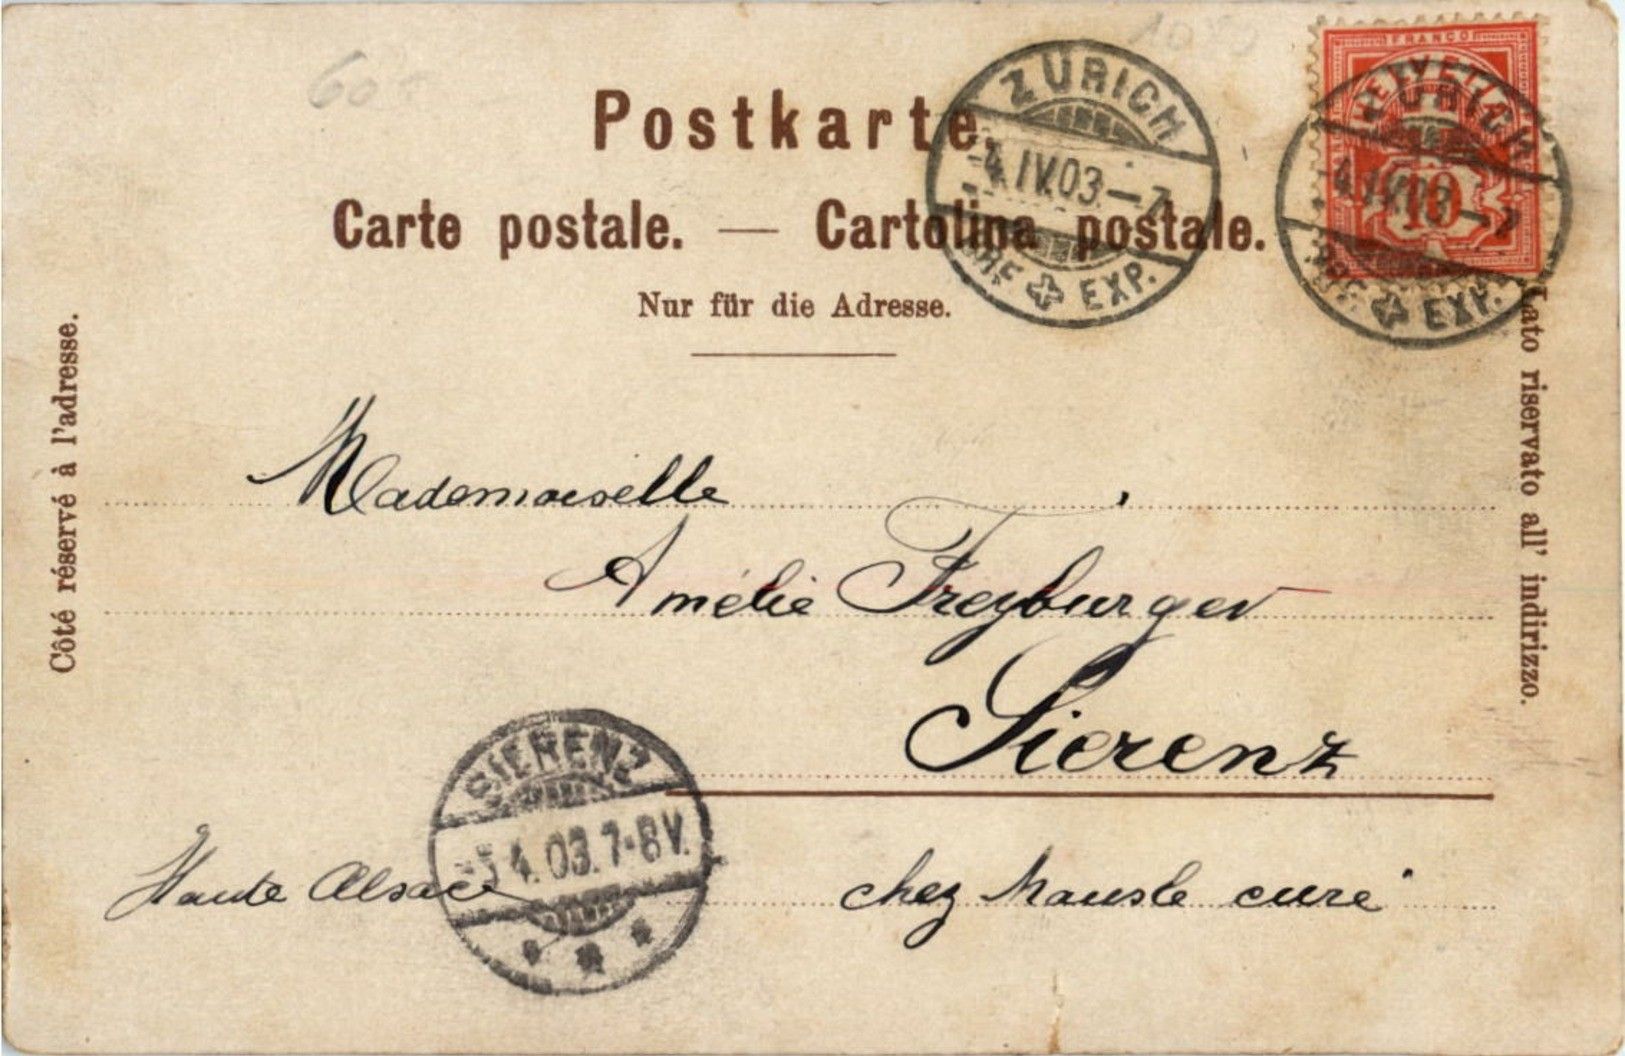 Postkarte
Carte postale. — Cartolina postale.
Nur für die Adresse.
ZÜRICH
4.IV.03.–7
BRF. EXP.
FRANCO
HELVETIA
10
ZÜRICH
4.IV.03–7
BRF. EXP.
Côté réservé à l'adresse.
Lato riservato all' indirizzo.
Mademoiselle
Amélie Freyburger
Sierenz
SIERENZ
5 4. 03. 7-8 V.
Haute Alsace
chez curé